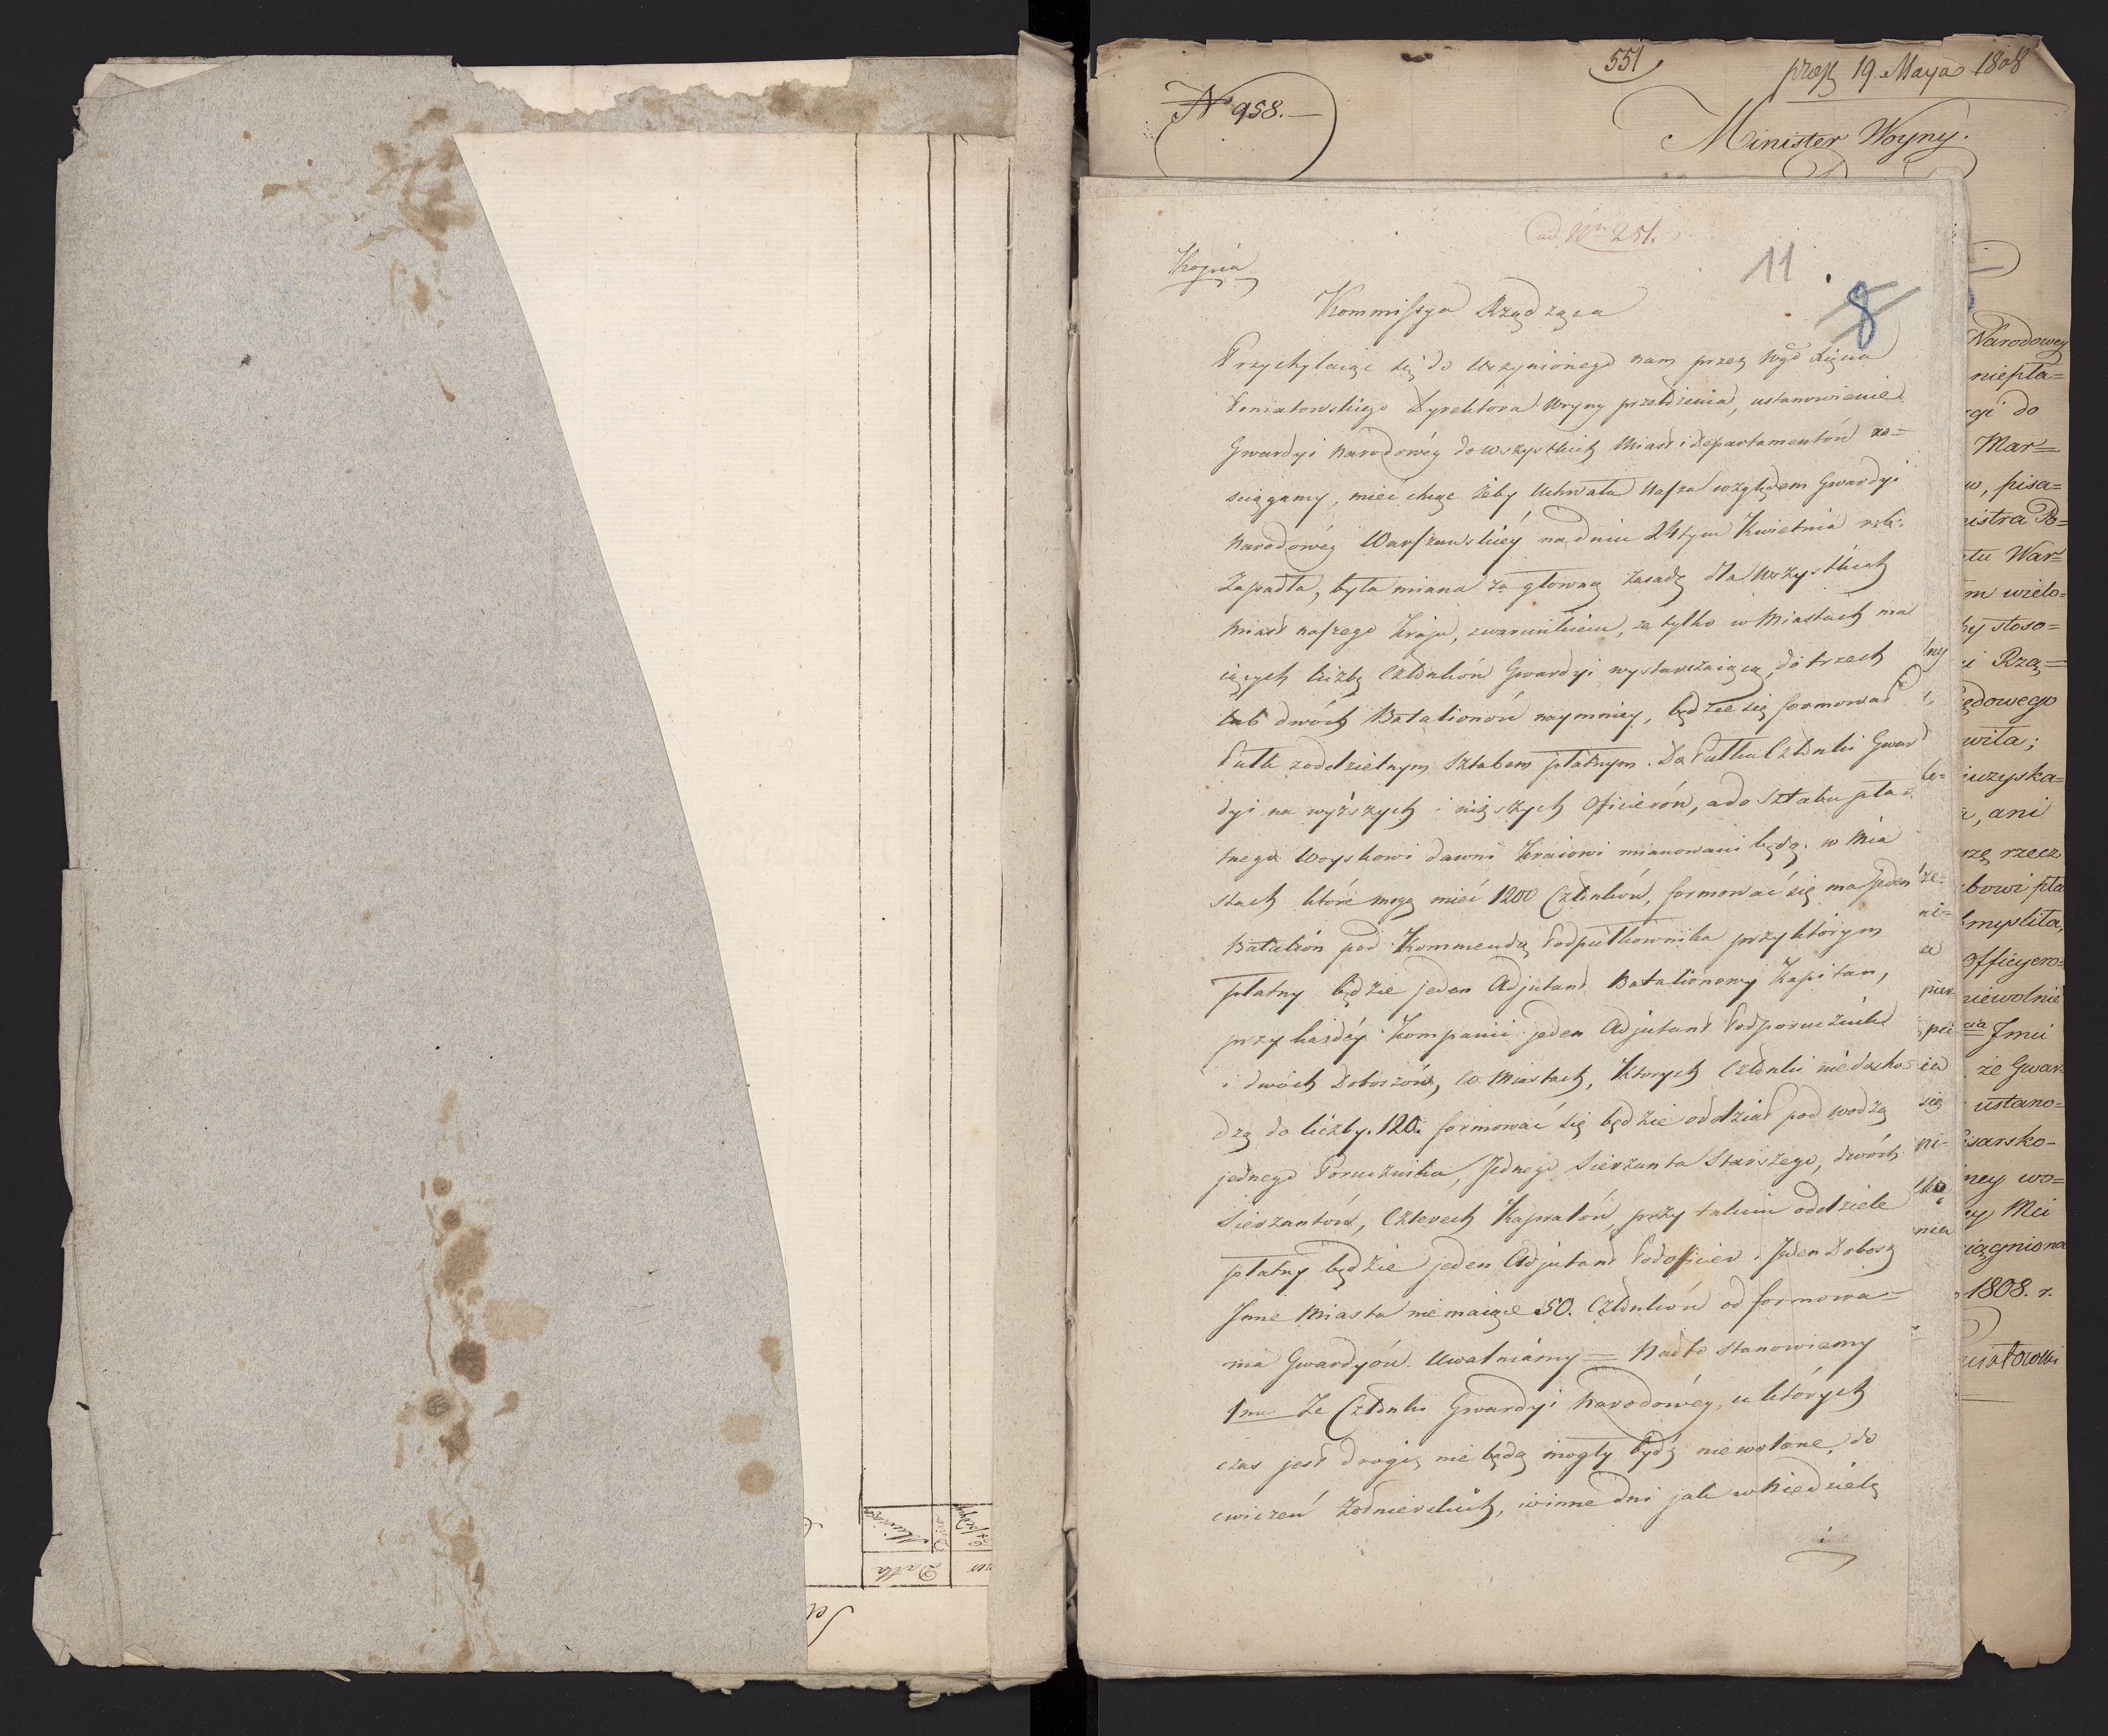 551
praes 19. Maya 1808
No 958.—
Minister Woyny.
ad Nrm 251.
11
8
Kopia
Kommissya Rządząca
Przychylaiąc się do uczynionego nam przez Xcia
Poniatowskiego Dyrektora Woyny przełożenia, ustanowienie
Gwardyi Narodowéy do wszystkich Miast i Departamentów ro=
sciągamy, mieć chcąc żeby Uchwała Nasza względem Gwardyi
Narodowéy Warszawskiéy na dniu 24tym Kwietnia rb:
Zapadła, była miana za głowną zasadę dla Wszystkich
Miast naszego Kraju, z warunkiem, że tylko w Miastach ma
iących liczbę Członków Gwardyi wystarczaiącą, do trzech
lub dwóch Batalionów naymniey, będzie się formował
Pułk z oddzielnym Sztabem płatnym. Do Pułku Członki Gwar
dyi na wyższych i niższych Oficierów, a do Sztabu pła=
tnego Woyskowi dawni Kraiowi mianowani będą. w Mia
stach które mogą mieć 1200 Członków, formować się ma jeden
Batalion pod Kommendą Podpułkownika przy którym
płatny będzie jeden Adjutant Batalionowy Kapitan,
przy każdéy Kompanii jeden Adjutant Podporucznik
i dwóch Doboszów, w Miastach, Ktorych Członki niedocho
dzą do liczby. 120. formować się będzie oddział pod wodzą
jednego Porucznika, Jednego Sierżanta Starszego, dwóch
Sierżantów, Czterech Kapralów, przy takim oddziele
płatny będzie jeden Adjutant Podoficier i Jeden Dobosz
Inne Miasta niemaiące 50. Członków od formowa=
nia Gwardyów. Uwalniamy = Nadto stanowiemy
1mo Ze Członki Gwardyi Narodowéy, u których
czas jest drogi, nie będą mogły bydź niewolone, do
cwiczeń Żołnierskich, w inne dni jak w Niedzielę
Narodowey
niepła=
gi do
Mar=
w, pisa=
istra Po=
tu War=
m wielo=
by stoso=
i Rzą=
ędowego
wiła;
uzyska=
, ani
rzę rzecz
bowi pła
myśliła,
Officyero=
niewolnie
cia Jmci
że Gwar=
ustano=
sarsko-
ney wo=
y Mci
iągniona
1808. r.
niatowski
ny
le=
że=
ni=
pier
się
ni=
nia
Datta